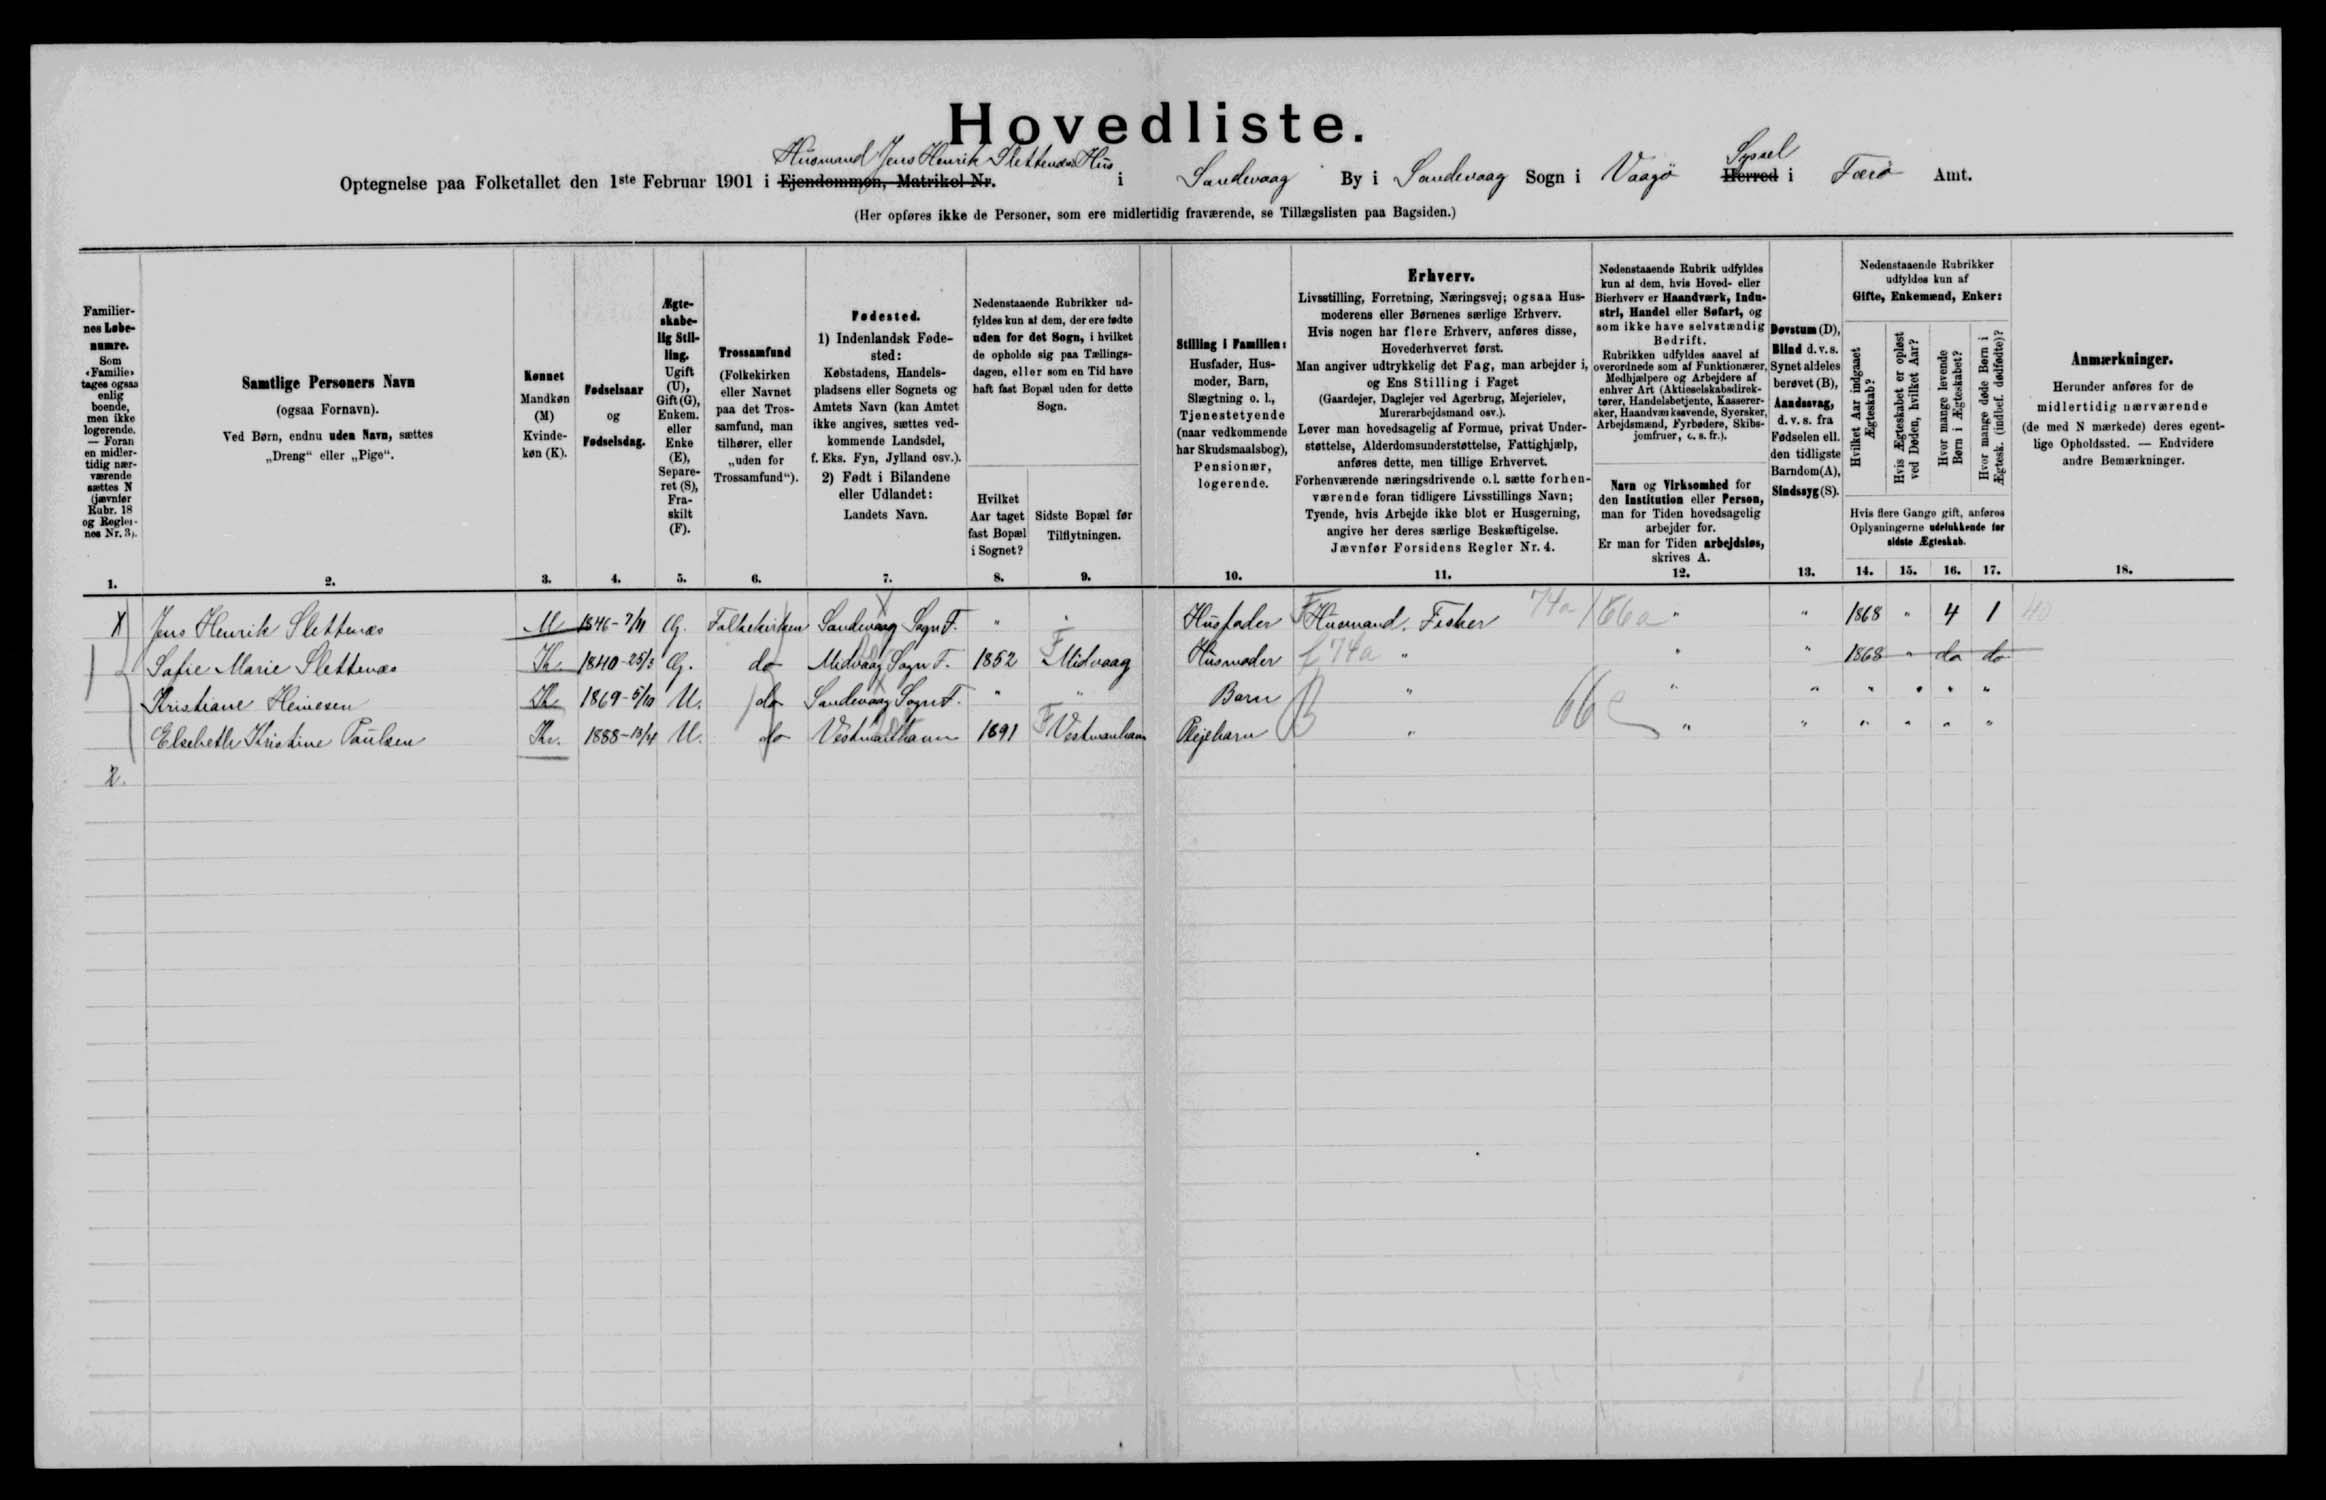 Hovedliste.
Husmand Jens Henrik Slettenæs Hus
Optegnelse paa Folketallet den 1ste Februar 1901 i Ejendommen, Matrikel Nr. i Sandevaag By i Sandevaag Sogn i Vaagø Syssel Herred i Færø Amt.
(Her opføres ikke de Personer, som ere midlertidig fraværende, se Tillægslisten paa Bagsiden.)
Familier-
nes Løbe-
numre.
Som
«Familie»
tages ogsaa
enlig
boende,
men ikke
logerende.
— Foran
en midler-
tidig nær-
værende
sættes N
(jævnfør
Rubr. 18
og Regler-
nes Nr. 3).
1.
Samtlige Personers Navn
(ogsaa Fornavn).
Ved Børn, endnu uden Navn, sættes
„Dreng“ eller „Pige“.
2.
Kønnet
Mandkøn
(M)
Kvinde-
køn (K).
3.
Fødselsaar
og
Fødselsdag.
4.
Ægte-
skabe-
lig Stil-
ling.
Ugift
(U),
Gift (G),
Enkem.
eller
Enke
(E),
Separe-
ret (S),
Fra-
skilt
(F).
5.
Trossamfund
(Folkekirken
eller Navnet
paa det Tros-
samfund, man
tilhører, eller
„uden for
Trossamfund“).
6.
Fødested.
1) Indenlandsk Føde-
sted:
Købstadens, Handels-
pladsens eller Sognets og
Amtets Navn (kan Amtet
ikke angives, sættes ved-
kommende Landsdel,
f. Eks. Fyn, Jylland osv.).
2) Født i Bilandene
eller Udlandet:
Landets Navn.
7.
Nedenstaaende Rubrikker ud-
fyldes kun af dem, der ere fødte
uden for det Sogn, i hvilket
de opholde sig paa Tællings-
dagen, eller som en Tid have
haft fast Bopæl uden for dette
Sogn.
Hvilket
Aar taget
fast Bopæl
i Sognet?
8.
Sidste Bopæl før
Tilflytningen.
9.
Stilling i Familien:
Husfader, Hus-
moder, Barn,
Slægtning o. l.,
Tjenestetyende
(naar vedkommende
har Skudsmaalsbog),
Pensionær,
logerende.
10.
Erhverv.
Livsstilling, Forretning, Næringsvej; ogsaa Hus-
moderens eller Børnenes særlige Erhverv.
Hvis nogen har flere Erhverv, anføres disse,
Hovederhvervet først.
Man angiver udtrykkelig det Fag, man arbejder i,
og Ens Stilling i Faget
(Gaardejer, Daglejer ved Agerbrug, Mejerielev,
Murerarbejdsmand osv.).
Lever man hovedsagelig af Formue, privat Under-
støttelse, Alderdomsunderstøttelse, Fattighjælp,
anføres dette, men tillige Erhvervet.
Forhenværende næringsdrivende o. l. sætte forhen-
værende foran tidligere Livsstillings Navn;
Tyende, hvis Arbejde ikke blot er Husgerning,
angive her deres særlige Beskæftigelse.
Jævnfør Forsidens Regler Nr. 4.
11.
Nedenstaaende Rubrik udfyldes
kun af dem, hvis Hoved- eller
Bierhverv er Haandværk, Indu-
stri, Handel eller Søfart, og
som ikke have selvstændig
Bedrift.
Rubrikken udfyldes saavel af
overordnede som af Funktionærer,
Medhjælpere og Arbejdere af
enhver Art (Aktieselskabsdirek-
tører, Handelsbetjente, Kasserer-
sker, Haandværkssvende, Syersker,
Arbejdsmænd, Fyrbødere, Skibs-
jomfruer, o. s. fr.).
Navn og Virksomhed for
den Institution eller Person,
man for Tiden hovedsagelig
arbejder for.
Er man for Tiden arbejdsløs,
skrives A.
12.
Døvstum (D),
Blind d. v. s.
Synet aldeles
berøvet (B),
Aandssvag,
d. v. s. fra
Fødselen ell.
den tidligste
Barndom (A),
Sindssyg (S).
13.
Nedenstaaende Rubrikker
udfyldes kun af
Gifte, Enkemænd, Enker:
Hvilket Aar indgaaet
Ægteskab?
Hvis Ægteskabet er opløst
ved Døden, hvilket Aar?
Hvor mange levende
Børn i Ægteskabet?
Hvor mange døde Børn i
Ægtesk. (indbef. dødfødte)?
Hvis flere Gange gift, anføres
Oplysningerne udelukkende for
sidste Ægteskab.
14. 15. 16. 17.
Anmærkninger.
Herunder anføres for de
midlertidig nærværende
(de med N mærkede) deres egent-
lige Opholdssted. — Endvidere
andre Bemærkninger.
18.
Jens Henrik Slettenæs M 1846-7/11 G. Folkekirken Sandevaag Sogn F. " " Husfader Husmand. Fisker 74a 66a " " 1868 " 4 1 40
Safie Marie Slettenæs K. 1840-25/3 G. do Midvaag Sogn F. 1852 F Midvaag Husmoder f 74a " " " 1868 " do do
Kristiane Heinesen K. 1869-5/10 U. do Sandevaag Sogn F. " " Barn " " " " " " "
Elsebeth Kristine Paulsen K. 1888-13/4 U. do Vestmanhavn 1891 F Vestmanhavn Plejebarn B " 66 " " " " " "
2.